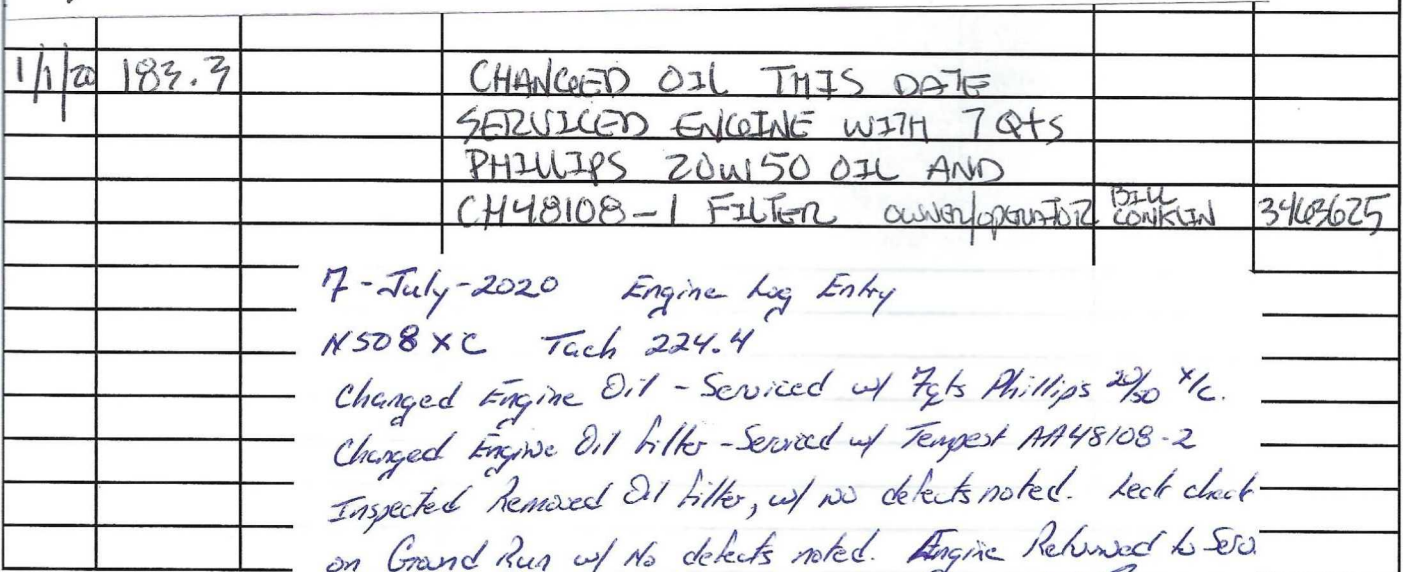 1/1/20 183.3 CHANGED OIL THIS DATE
SERVICED ENGINE WITH 7 QTS
PHILLIPS 20W50 OIL AND
CH48108-1 FILTER OWNER/OPERATOR BILL CONKLIN 3463625
7-July-2020 Engine Log Entry
N508XC Tach 224.4
Changed Engine Oil - Serviced w/ 7qts Phillips 20/50 X/C.
Changed Engine Oil Filter - Serviced w/ Tempest AA48108-2
Inspected Removed Oil Filter, w/ no defects noted. Leck check
on Ground Run w/ No defects noted. Engine Returned to Serv.